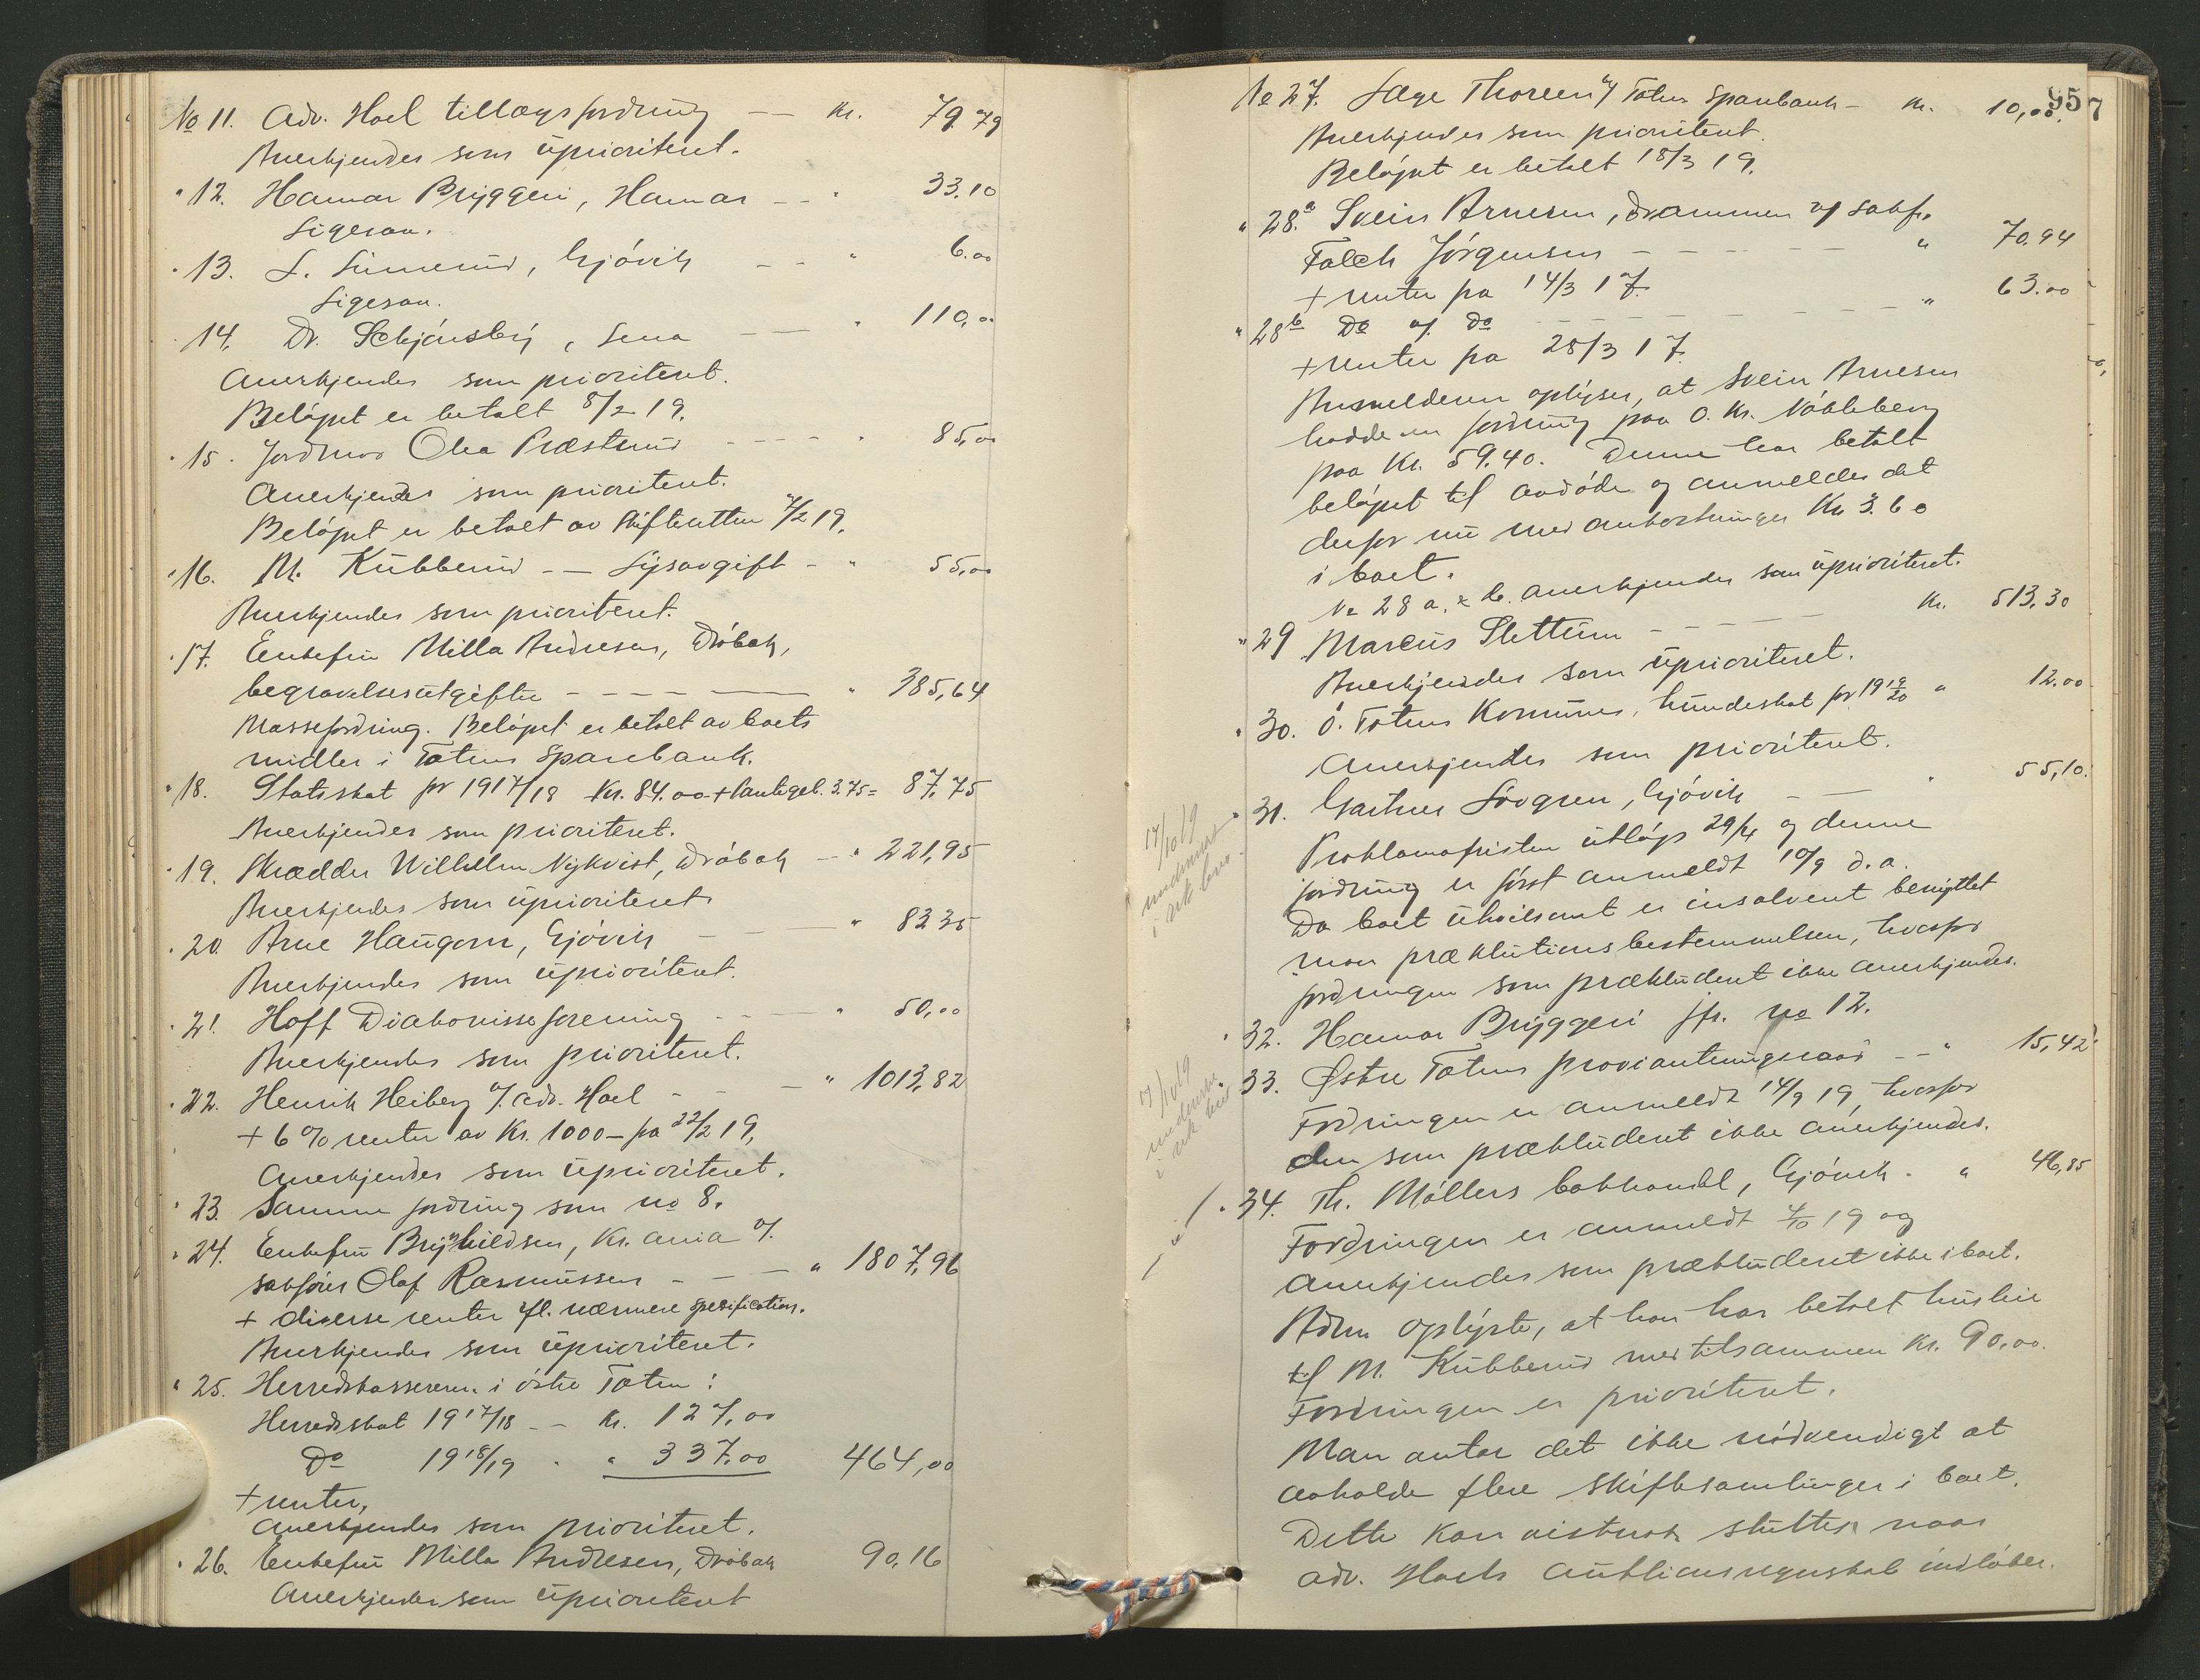 No 11. Adv. Hoel tillægsfordring — kr. 79.79
Anerkjendes som uprioritert.
" 12. Hamar Bryggeri, Hamar - - " 33.10
Ligesaa.
" 13. L. Limerud, Gjövik - - " 6.00
Ligesaa.
" 14. Dr. Schjönsby, Lena - — " 110,00
Anerkjendes som prioritert.
Belöpet er betalt 8/2 19.
" 15. Jordmor Olea Præstrud - - - - " 85,00
Anerkjendes som prioritert.
Belöpet er betalt av skifteretten 7/2 19.
" 16. M. Kubberud - — Lysavgift - " 55,00
Anerkjendes som prioritert.
" 17. Enkefru Milla Andresen, Dröbak,
begravelsesutgifter - - - - — " 385,64
Massefordring. Belöpet er betalt av boets
midler i Totens Sparebank.
" 18. Statsskat for 1917/18 Kr. 84.00 + Pantegeb. 3.75 = 87,75
Anerkjendes som prioritert.
" 19. Skrædder Wilhelm Nykvist, Dröbak - " 221,95
Anerkjendes som uprioritert
" 20. Arne Haugom, Gjövik - — " 82 35
Anerkjendes som uprioritert.
" 21. Hoff Diakonisseforening - - — " 50,00
Anerkjendes som prioritert.
" 22. Henrik Heiberg v/ adv. Hoel - - — " 1013,82
+ 6 % renter av Kr. 1000 – fra 22/2 19,
Anerkjendes som uprioritert.
" 23. Samme fordring som no 8.
" 24. Enkefru Brynhildsen, Kr.ania v/
sakförer Olaf Rasmussen - - - — " 1807,96
+ diverse renter ifl. nærmere spesifikation.
Anerkjendes som uprioritert.
" 25. Herredskassereren i östre Toten:
Herredsskat 1917/18 - - Kr. 127,00
Do 1918/19 - " 337,00 464,00
+ renter,
Anerkjendes som prioritert.
" 26. Enkefru Milla Andresen, Dröbak 90,16
Anerkjendes som uprioritert
957
No 27. Læge Thoreen v/ Totens Sparebank – Kr. 10,00
Anerkjendes som prioritert.
Belöpet er betalt 18/3 19.
" 28 a. Svein Arnesen, Drammen v/ sakf.
Falch Jörgensen - - - - - " 70.94
+ renter fra 14/3 17.
" 28 b Do v/ Do - - - - - " 63.00
+ renter fra 28/3 17.
Anmelderen oplyser, at Svein Arnesen
hadde en fordring paa O. Kr. Nökleberg
paa Kr. 59.40. Denne har betalt
belöpet til avdöde og anmeldes det
derfor nu med omkostninger Kr 3.60
i boet.
No 28 a. & b. anerkjendes som uprioritert.
" 29 Marcus Slettum - - - - Kr. 513,30
Anerkjendes som uprioritert.
" 30. Ö. Totens Kommune, hundeskat for 1919/20 " 12.00
Anerkjendes som prioritert.
" 31. Gartner Lövgren, Gjövik - — " 55,10.
Proklamafristen utløp 29/4 og denne
fordring er först anmeldt 10/9 d.a.
Da boet utvilsomt er insolvent benyttet
man præklusionsbestemmelsen, hvorfor
fordringen som prækludert ikke anerkjendes.
17/10 19
underrettet
i ark. brev
" 32. Hamar Bryggeri jfr. no 12.
33. Østre Totens provianteringsraad - - " 15,42
Fordringen er anmeldt 14/9 19, hvorfor
den som prækludert ikke anerkjendes.
17/10 19
underrettet
i ark. brev
" 34. Th. Möllers bokhandel, Gjövik. " 46,85
Fordringen er anmeldt 4/10 19 og
anerkjendes som prækludert ikke i boet.
Adm oplyste, at han har betalt husleie
til M. Kubberud med tilsammen Kr. 90.00.
Fordringen er prioritert.
Man antar det ikke nödvendigt at
avholde flere skiftesamlinger i boet.
Dette kan sluttes naar
adv. Hoels auktionsregnskab indløber.